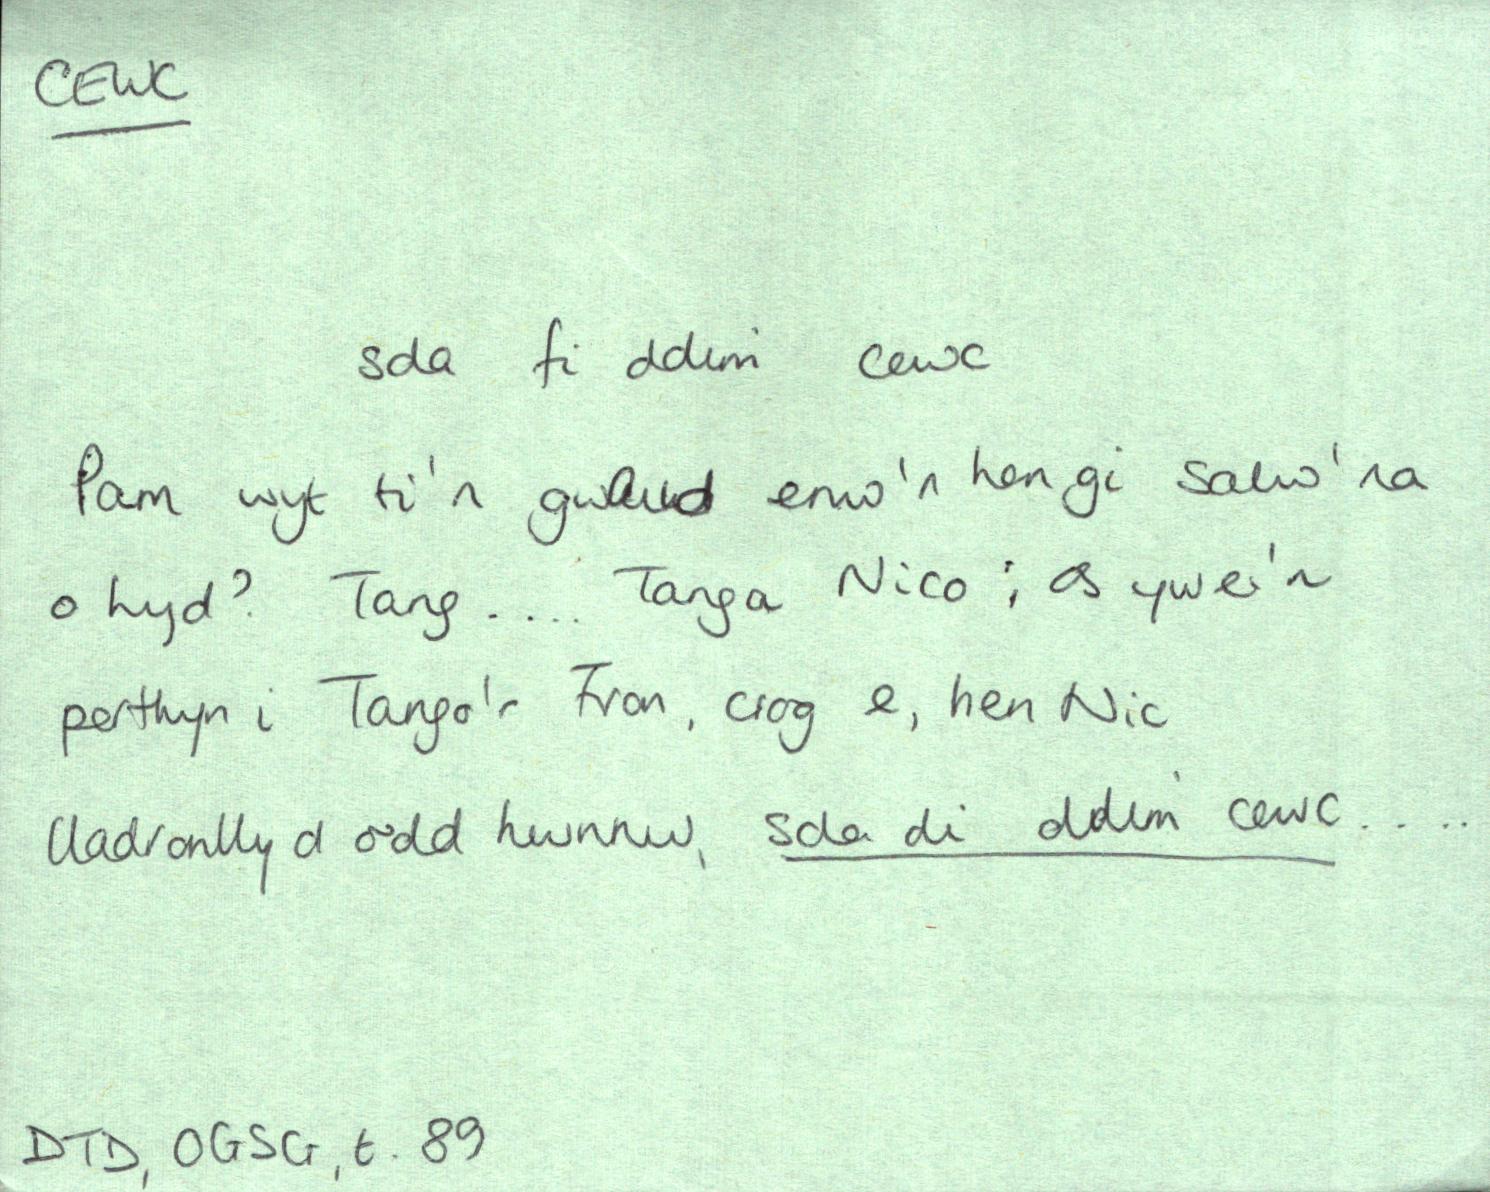 CEWC
sda fi ddim cewc
Pam wyt ti'n gweud enw'n hen gi salw'na
o hyd? Tang .... Tanga Nico; os yw e'n
perthyn i Tango'r Fron, crog e, hen Nic
lladronllyd ôdd hwnnw, sda di ddim cewc.....
DTD, OGSG, t. 89